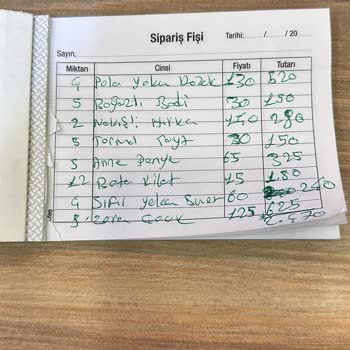 Sipariş Fişi Tarihi: / / 20
Sayın,
Miktarı Cinsi Fiyatı Tutarı
4 Pola Yaka 130 520
5 Boğazlı Badi 30 150
2 Nakışlı Hırka 140 280
5 Tayt 30 150
5 Anne Penye 65 325
12 Külot 15 180
4 Sıfır Yaka 60 240
5 Çocuk 125 625
2.470